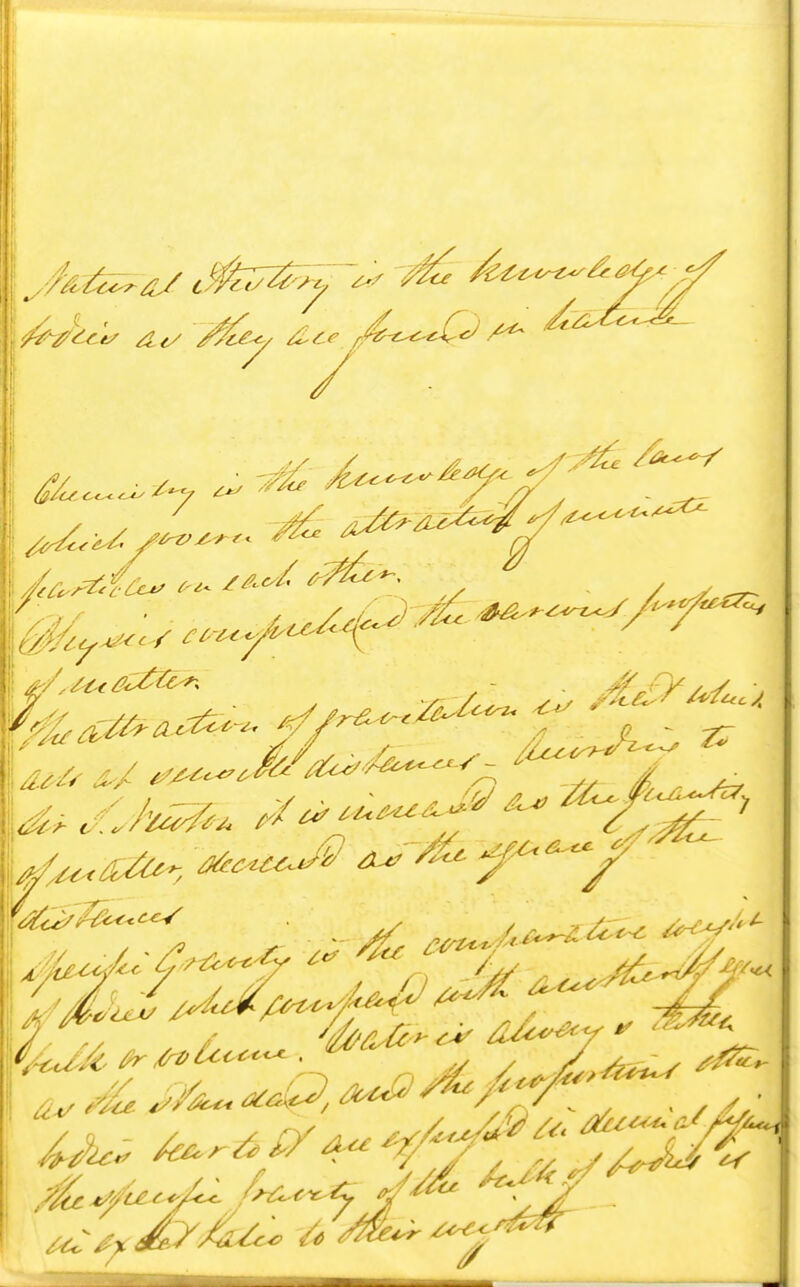 Natural History is the knowledge of
bodies as they are found in nature
Chemistry is the knowledge of the laws
which govern the attraction of minute
particles on each other.
Physics comprehend the various properties
of matter.
The attraction of gravitation is that which
acts at sensible distances - According to
Sir I. Newton it is increased as the quantity
of matter, decreas'd as the square of the
distances
Specific Gravity is the comparative weight
of bodies when compared with another of equal
bulk or volume. Water is always taken
as the standard, and the proportions other
bodies bear to it are express'd in decimal figures
The specific gravity of the bulk of bodies is
in exact ratio to their weight